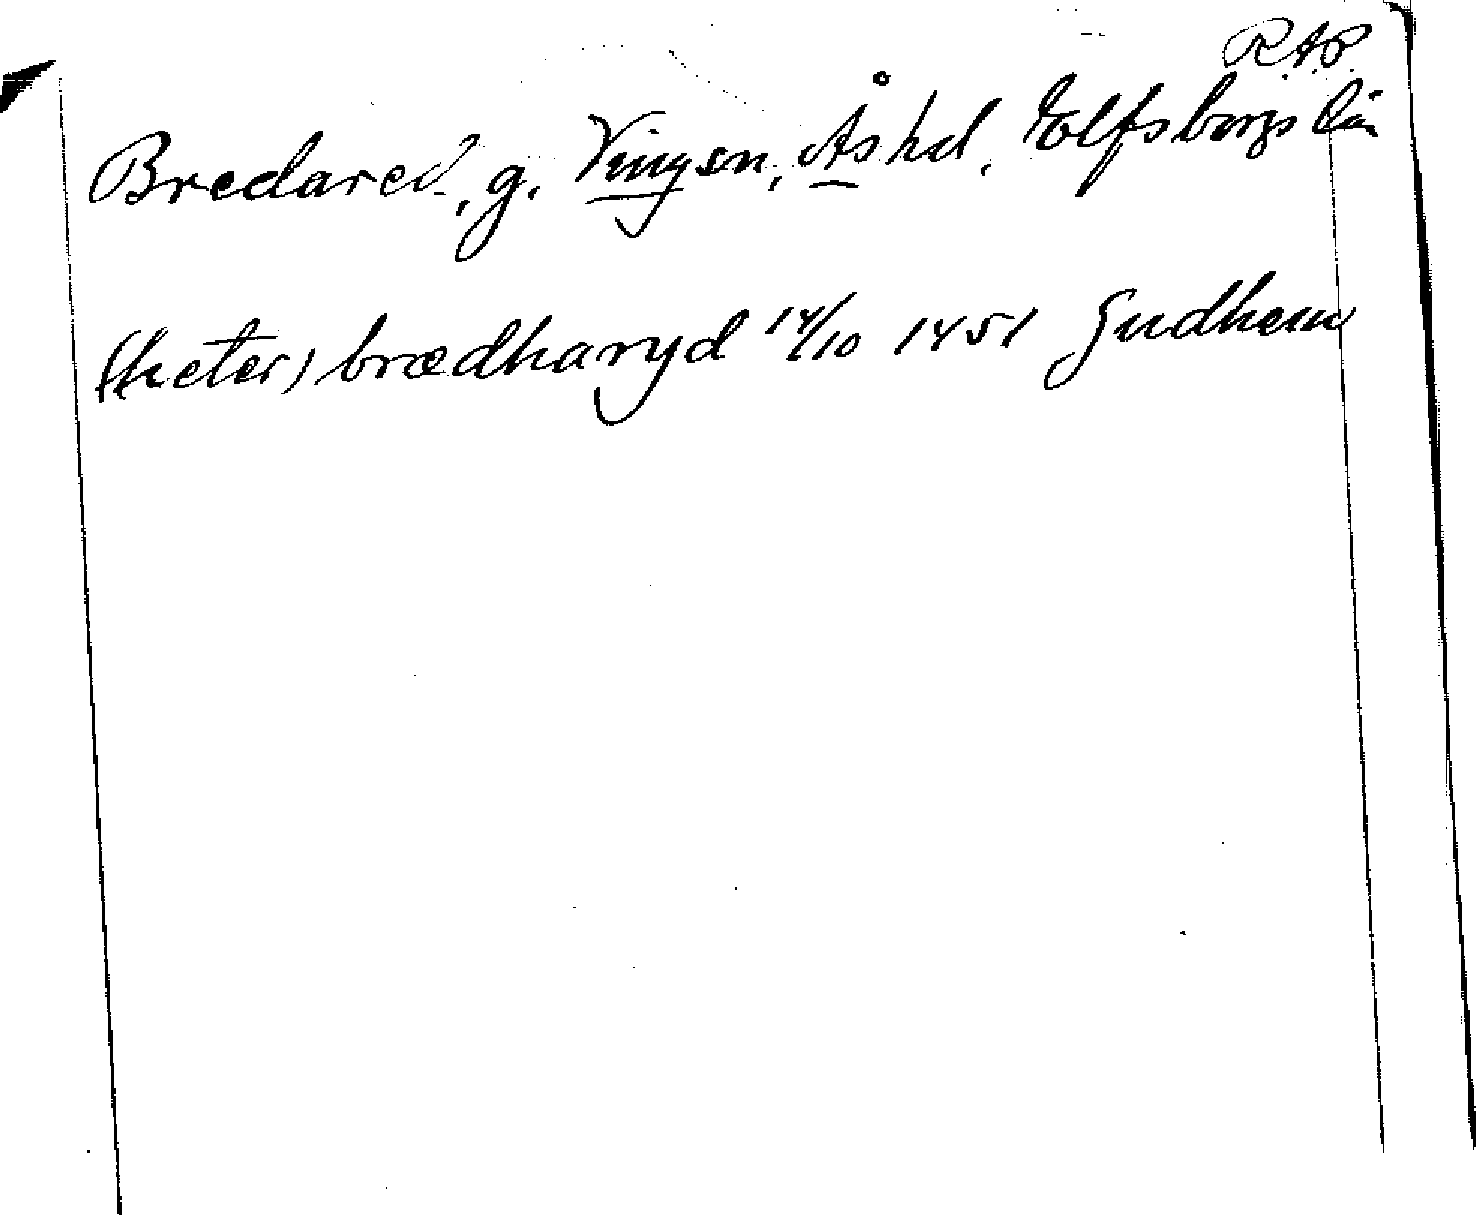 R.A.P.
Bredared, g. Ving sn, Ås hd, Elfsborgs län
(heter) brædharyd 14/10 1451 Gudhem